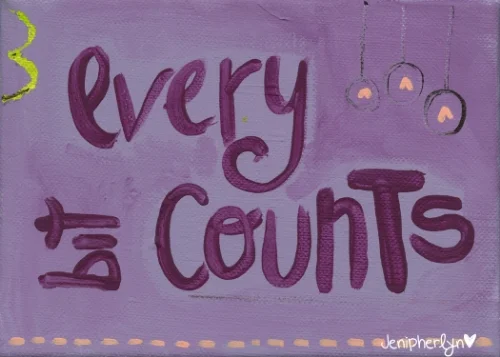 every
bit counts
Jenipherlyn